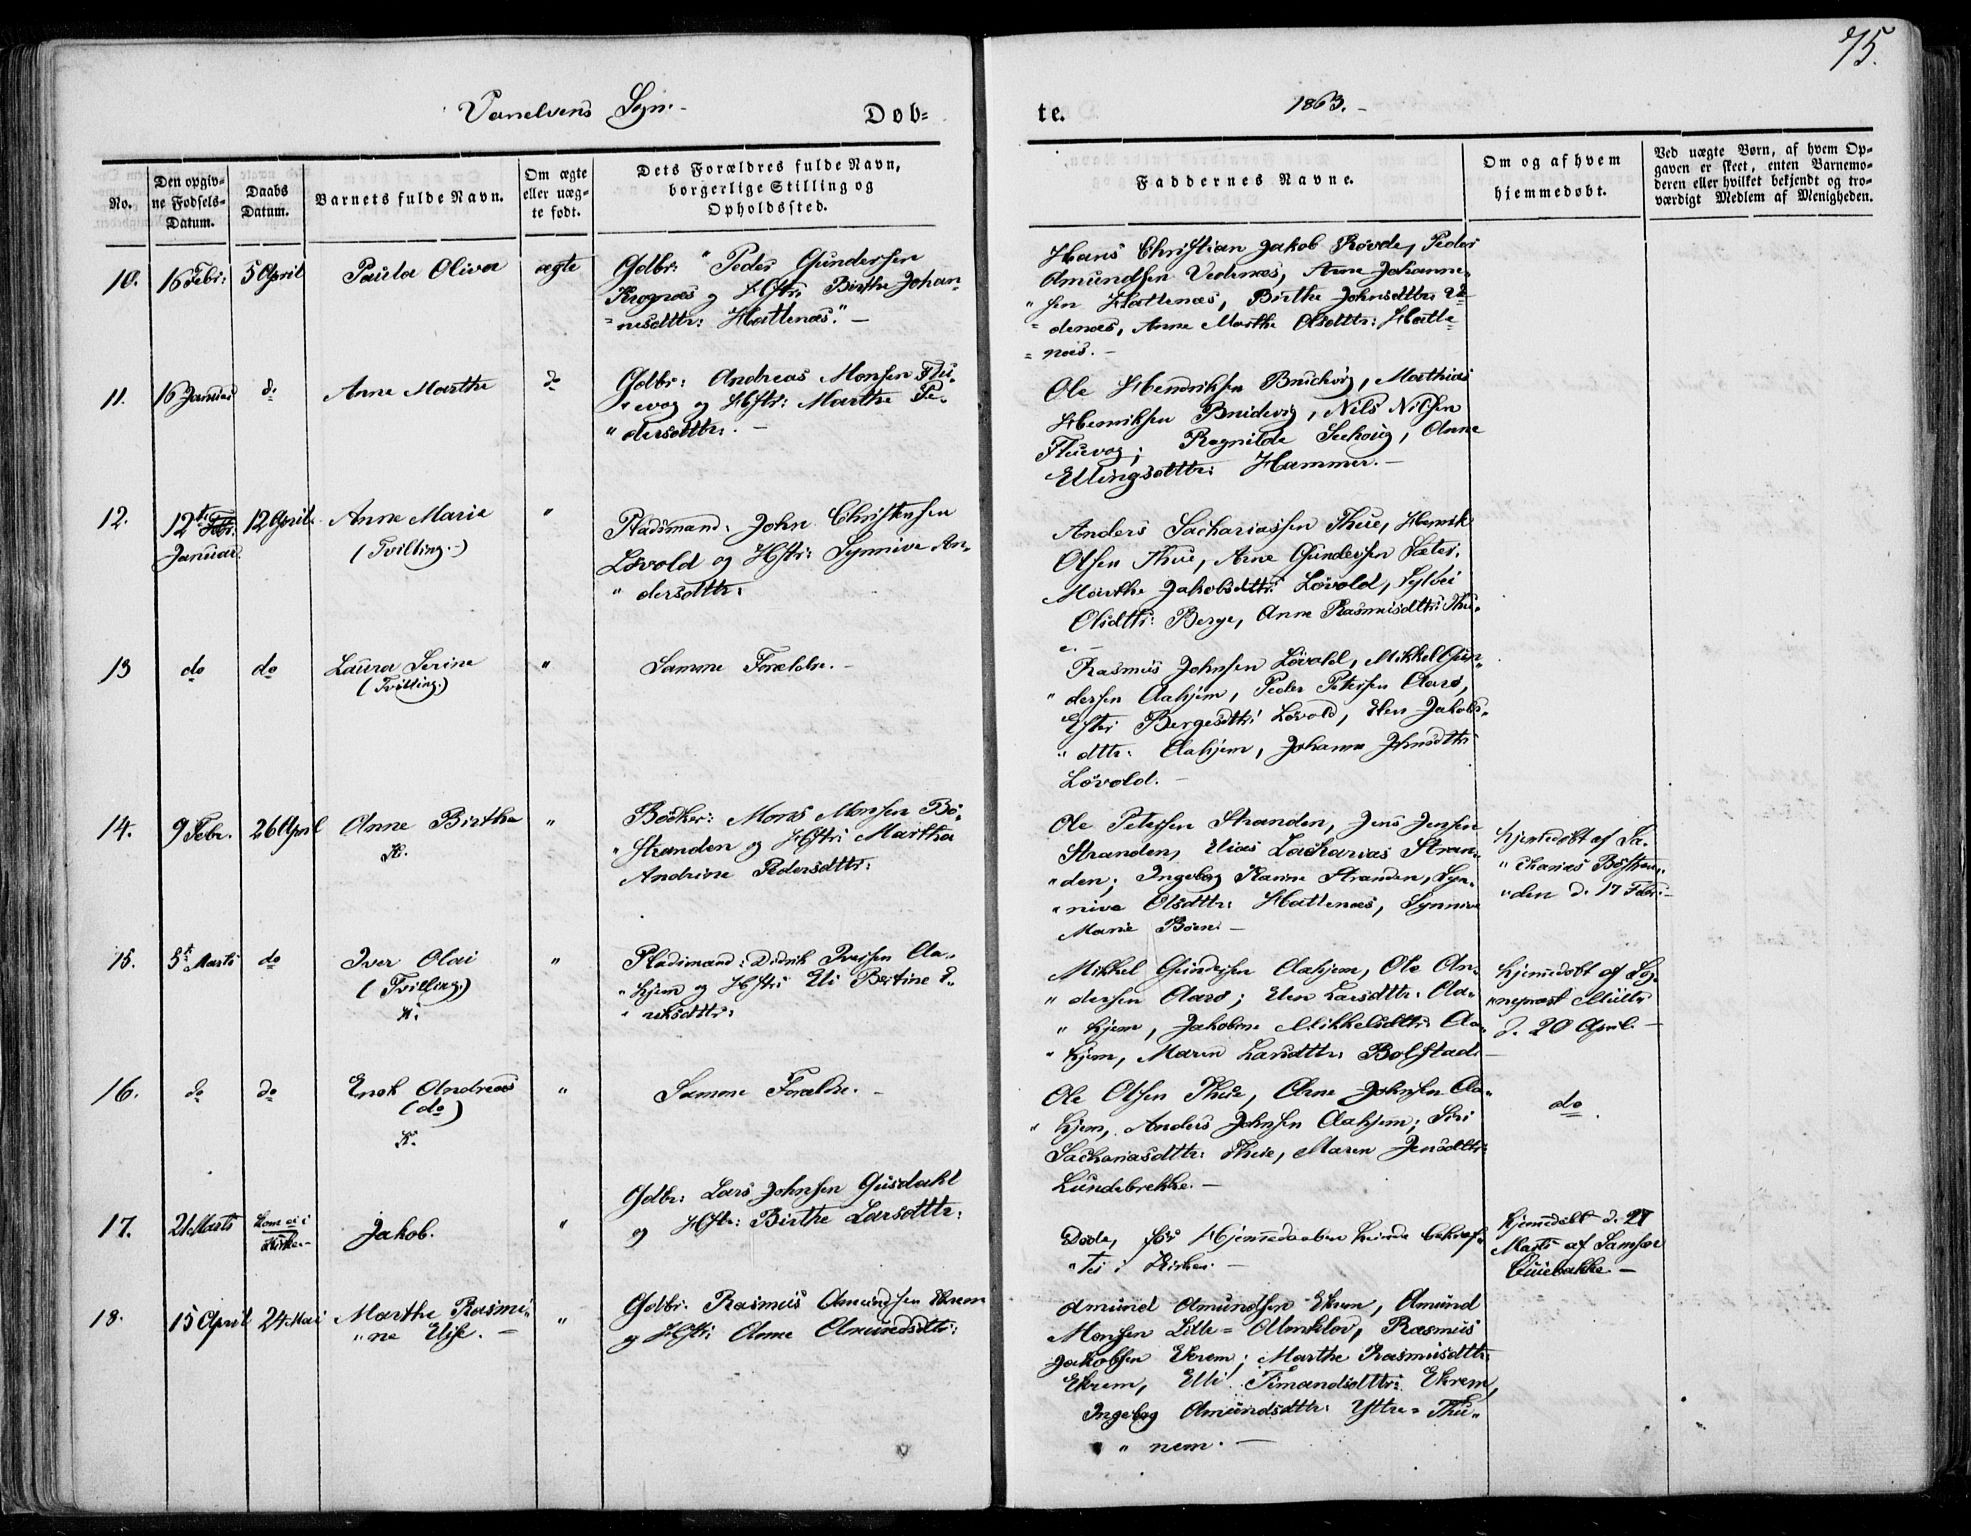 75.
Vanelvens Sogn.
Døb=
te.
1863.
No.
Den opgiv-
ne Fødsels-
Datum.
Daabs
Datum.
Barnets fulde Navn.
Om ægte
eller uæg-
te født.
Dets Forældres fulde Navn,
borgerlige Stilling og
Opholdssted.
Faddernes Navne.
Om og af hvem
hjemmedøbt.
Ved uægte Børn, af hvem Op-
gaven er skeet, enten Barnemo-
deren eller hvilket bekjendt og tro-
værdigt Medlem af Menigheden.
10.
16 Febr:
5 April
Paula Oliva
ægte
Gdbr: Peder Gundersen
Krognæs og Hstr: Birthe Johan-
nesdttr: Hattenæs.
Hans Christian Jakob Rovde, Peder
Amundsen Vedenæs, Arne Johanne-
sen Hattenæs, Birthe Johnsdttr: Ve
denæs, Anne Marthe Olsdttr: Hatle
næs.
11.
16 Januar
do
Anne Marthe
do
Gdbr: Andreas Monsen Flu-
evog og Hstr: Marthe Pe-
dersdttr:
Ole Hendriksen Brudevig, Mathias
Henriksen Brudevig, Nils Nilsen
Fluevog; Ragnilde Seehoug, Anne
Ellingsdttr: Hammer.
12.
12te Febr:
Januar
12 April
Anne Marie
(Tvilling.)
"
Pladsmand: John Christensen
Løvold og Hstr: Synnive An-
dersdttr:
Anders Sachariassen Thue, Henrik
Olsen Thue, Arne Gundersen Sæter,
Marthe Jakobsdttr: Løvold, Sylvei
Olsdttr: Berge, Anne Rasmusdttr: Thu-
e.
13
do
do
Laura Serine
(Tvilling.)
"
Samme Forældre.
Rasmus Johnsen Løvold, Mikkel Gun-
dersen Aahjem, Peder Petersen Aarø,
Ester Bergesdttr: Løvold, Elen Jakobs-
dttr: Aahjem, Johanne Johnsdttr:
Løvold.
14.
9 Febr.
26 April
Anne Birthe
H.
"
Bødker: Mons Monsen Bø-
stranden og Hstr: Martha
Andrine Pedersdttr:
Ole Petersen Stranden, Jens Jensen
Stranden, Elias Zacharias Stran-
den; Ingeborg Karine Stranden, Syn-
nive Olsdttr: Hattenæs, Synnive
Marie Bøen.
hjemmedøbt af Sa-
charias Bøstran-
den d. 17 Febr:
15.
5te Marts
do
Iver Olai
(Tvilling)
H.
"
Pladsmand: Didrik Iversen Aa-
hjem og Hstr: Eli Bertine E-
riksdttr:
Mikkel Gundersen Aahjem, Ole An-
dersen Aarø; Elen Larsdttr: Aa-
hjem, Jakobine Mikkelsdttr: Aa-
hjem, Maren Larsdttr: Bolstad
hjemmedøbt af Sog-
nepræst Müller
d. 20 April.
16.
do
do
Enok Andreas
(do)
H.
"
Samme Forældre.
Ole Olsen Thue, Arne Johnsen Aa-
hjem, Anders Johnsen Aahjem; Siri
Sachariasdttr: Thue, Maren Jensdttr:
Lundebrekke.
do
17.
21 Marts
kom ei i
Kirke.
Jakob.
"
Gdbr: Lars Johnsen Gusdahl
og Hstr: Birthe Larsdttr:
Døde, før Hjemmedaaben kunde bekræf-
tes i Kirken.
hjemmedøbt d. 27
Marts af Samson
18.
15 April
24 Mai
Marthe Rasmi-
ne Elise.
"
Gdbr: Rasmus Amundsen Ekrem
og Hstr: Anne Amundsdttr:
Amund Amundsen Ekrem, Amund
Monsen Lille=Almklov, Rasmus
Jakobsen Ekrem; Marthe Rasmusdttr:
Ekrem, Elli Timandsdttr: Ekrem,
Ingeborg Amundsdttr: Yttre=Thu-
nem.